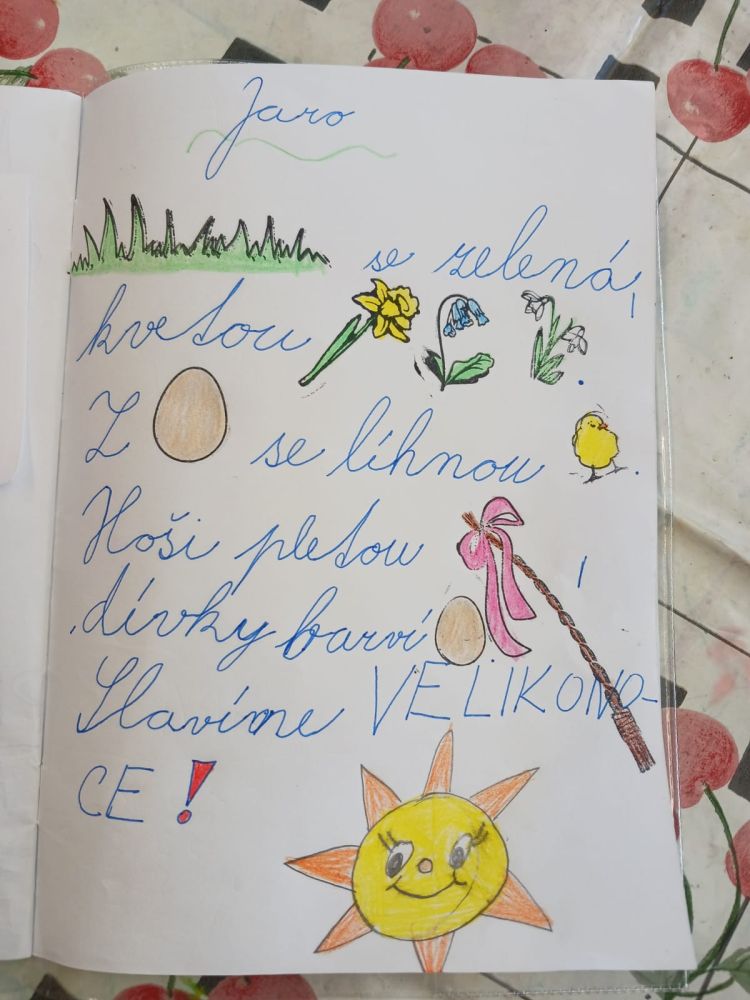 Jaro
se zelená,
kvetou .
Z se líhnou .
Hoši pletou ,
dívky barví
Slavíme VELIKONO-
CE !